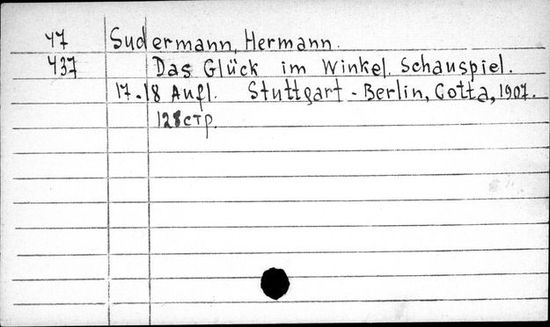 47 Sudermann, Hermann.
437 Das Glück im Winkel. Schauspiel.
17.18 Aufl. Stuttgart - Berlin, Cotta, 1907.
128 стр.